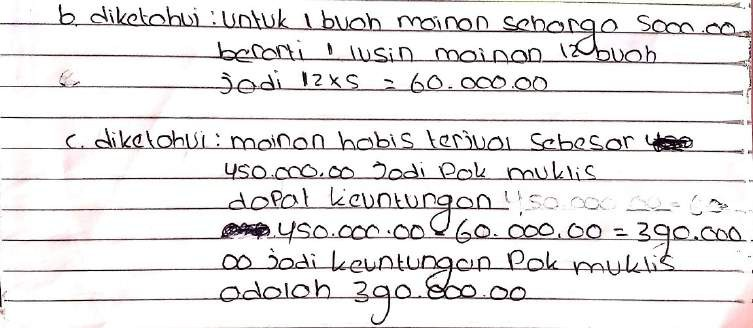 b. diketahui : untuk 1 buah mainan seharga 5000.00
berarti 1 lusin mainan 12 buah
jadi 12x5 = 60.000.00
c. diketahui : mainan habis terjual sebesar
450.000.00 Jadi Pak muklis
dapat keuntungan 450.000
450.000.00 - 60.000.00 = 390.000
00 jadi keuntungan Pak muklis
adalah 390.000.00